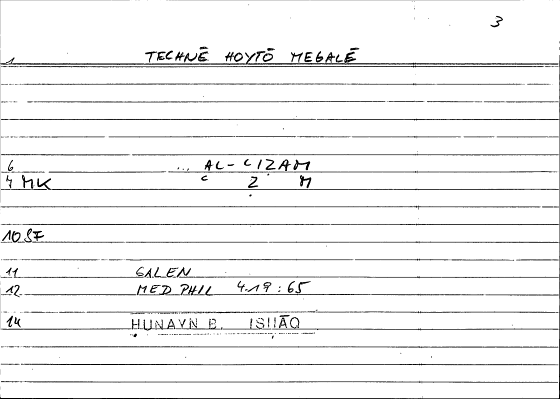 3
1 TECHNĒ HOYTŌ MEGALĒ
6 ... AL-CIẒAM
7 MK C Ẓ M
10 SF
11 GALEN
12 MED PHIL 4.19:65
14 ḤUNAYN B. ISḤĀQ